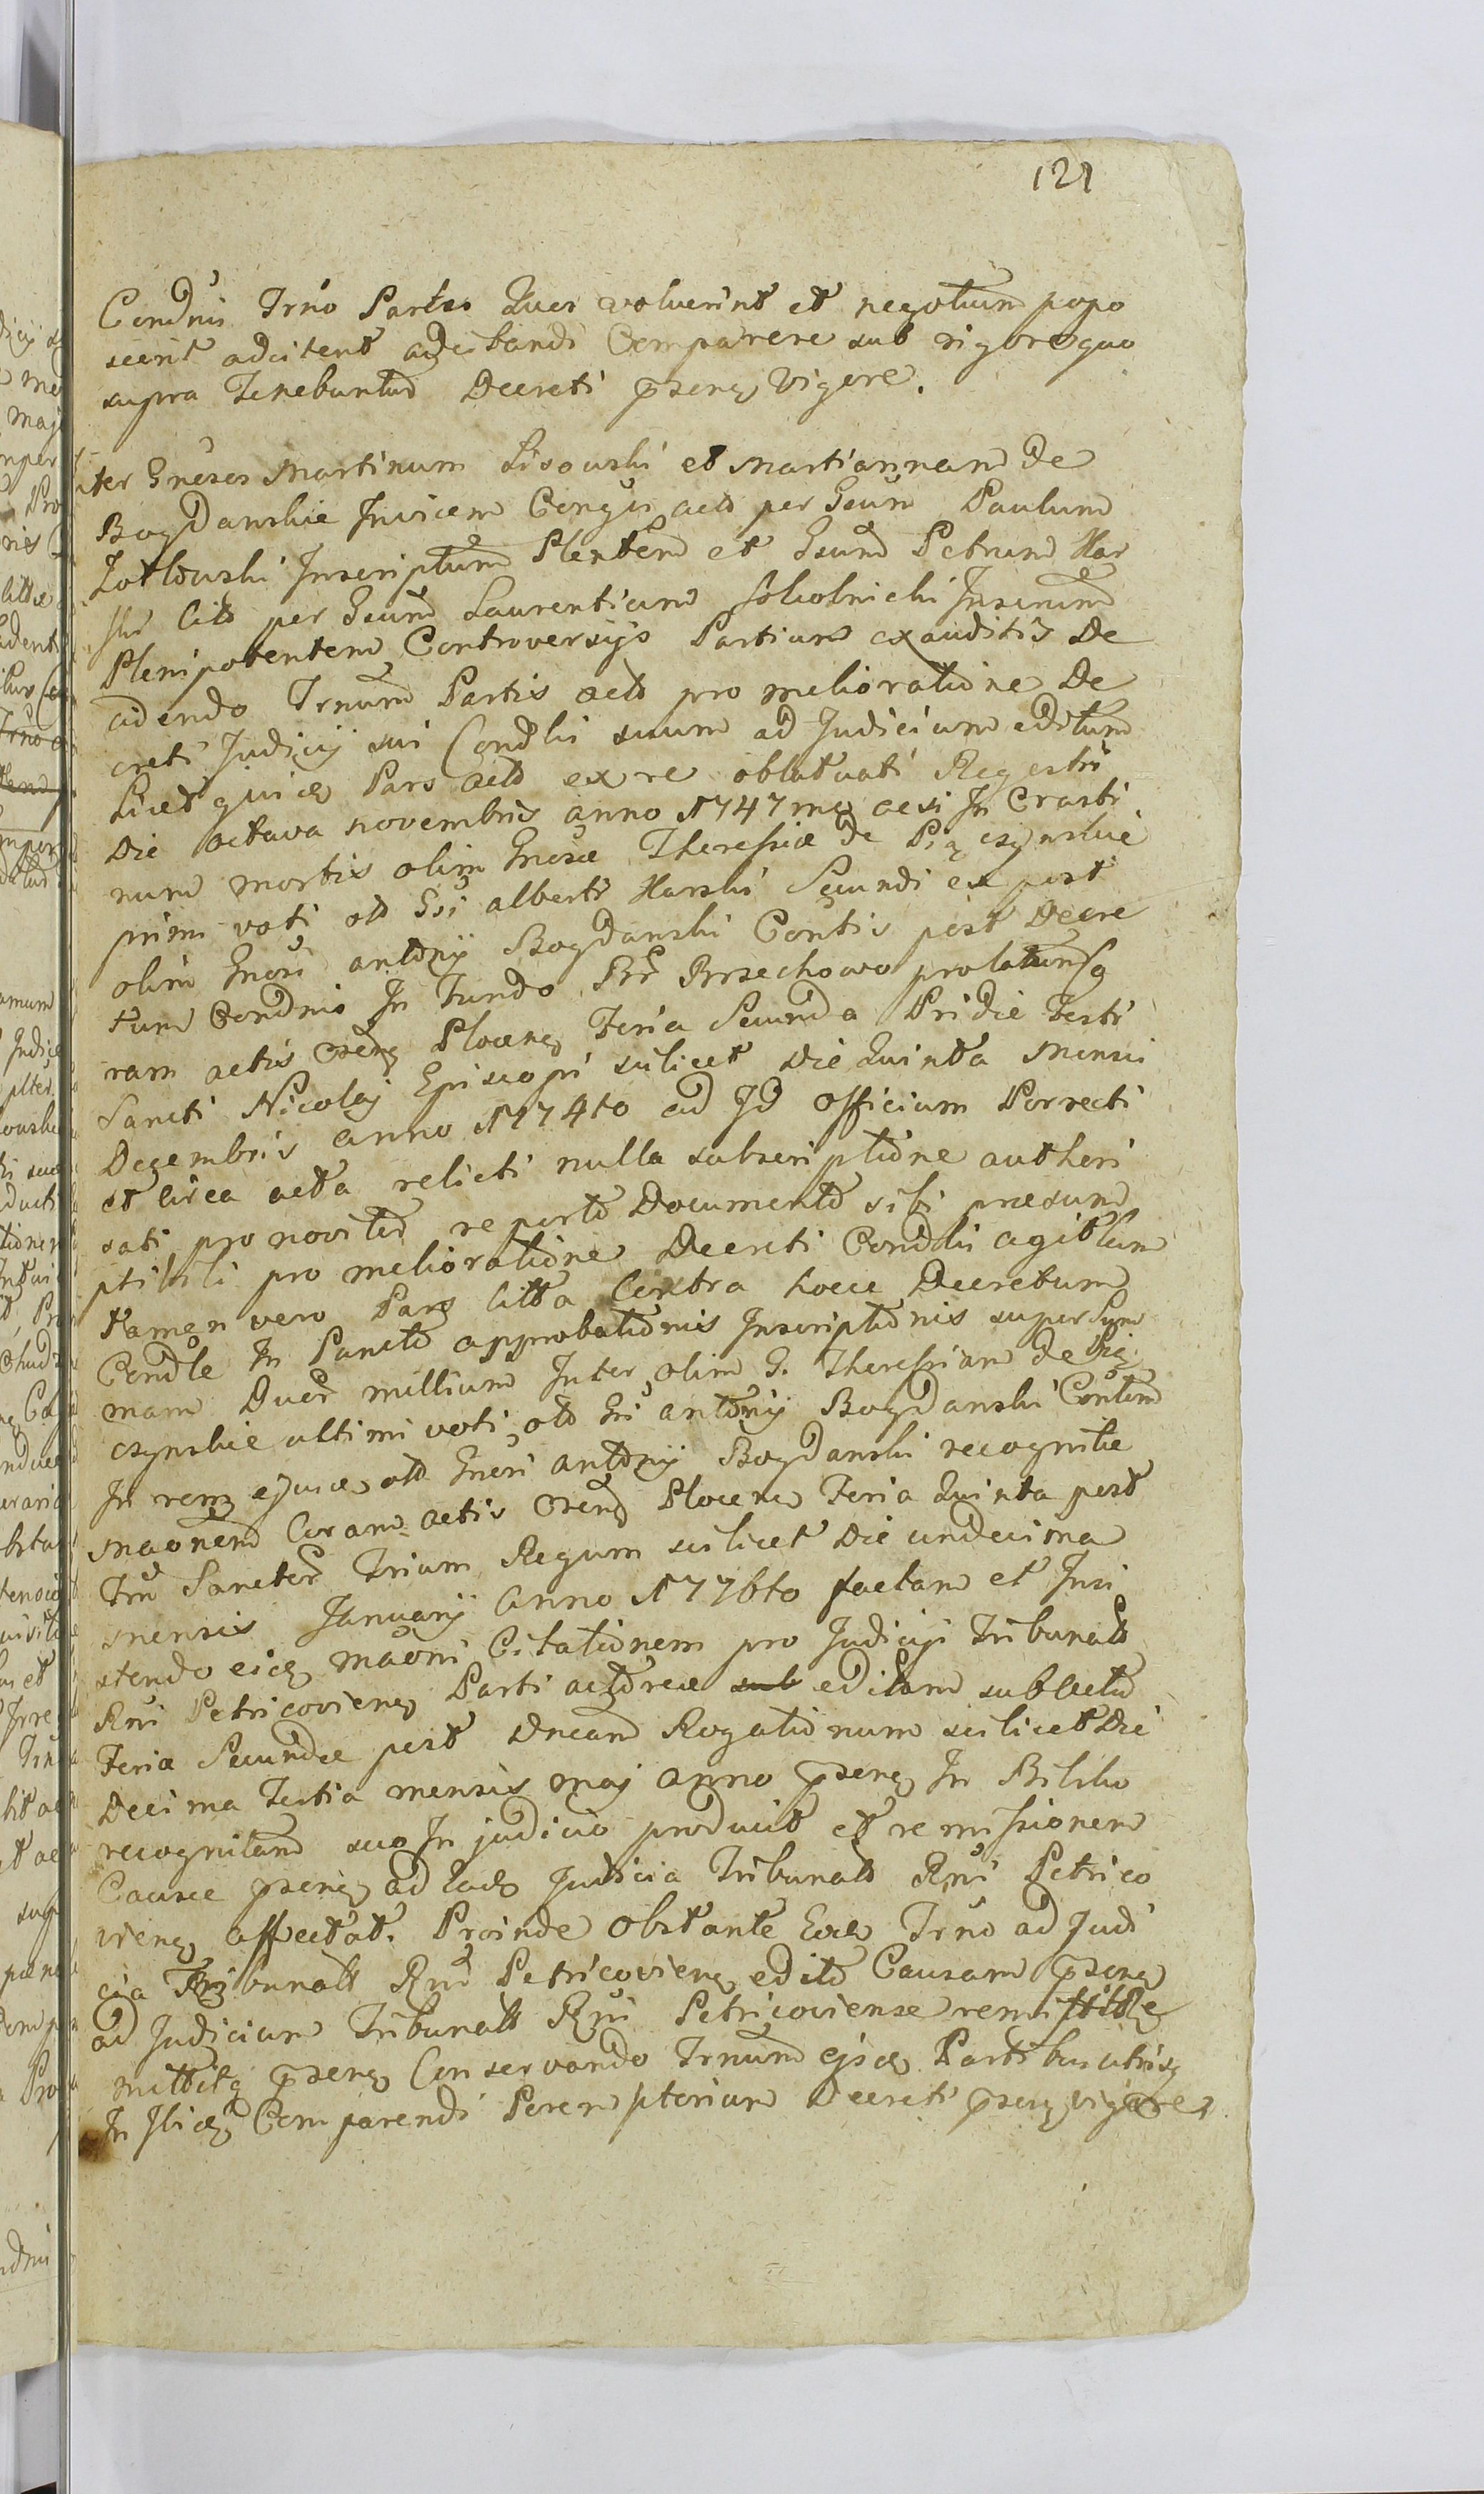 121
Condnis Trno Partes Quos voluerint et negotium popo
scerit adcitent adcitandi Comparere sub rigore quo
supra Tenebuntur Decreti prseng Vigore.
ter Gnosos Martinum Lisowski et Martiannam de
Bogdanskie Invicem Conges act per Gsum Paulum
Zotlowski Inscriptum Plentem et Gsum Petrum Kar
ski Citt per Gsum Laurentium Skolnicki Inserum
Plenipotentem Controversijs Partium exauditis De
cidendo Trnum Partis act pro melioratione De
creti Judicij sui Condlis suum ad Judicium editum
Licet quid Pars act ex re oblatvati Regestri
Die octava novembris anno 1747mo acsi In Crasti
num mortis olim Gnosæ Theresiæ de Piączynskie
primi voti old Gsi alberti Karski Secundi ex post
olim Gnosi antonij Bogdanski Contis post Decre
tum Condnis In Fundo Brr Brzechowo prolatum Co
ram actis Crseng Ploceng Feria Secunda Pridie Festi
Sancti Nicolaj Episcopi scilicet Die Quinta Mensis
Dezembris anno 1774to ad Id officium Porrecti
et circa acta relicti nulla subscriptione authori
sati pro noviter reperto Documento sibi præsum
ptibili pro melioratione Decreti Condlis agitum
tamen vero Pars citta Contra hocce Decretum
Condle In Puncto approbationis Inscriptionis super Sum
mam Duor millium Inter olim G. Theressiam de Pią
czynskie ultimi voti old Gsi antonij Bogdanski Contem
In rem ejusd old Gnosi antonij Bogdanski recognitæ
Maonem Coram actis Crseng Ploceng Feria Quinta post
Ftu Sanctor Trium Regum scilicet Die undecima
mensis Januarij Anno 1776to factam et Insi
stendo eid maoni Citationem pro Judicijs Tribunalb
Rni Petricovieng Parti actoreæ sub editam sub actu
Feria Secunda post Dncam Rogationum scilicet Die
Decima Tertia mensis maj anno prseng In Bilsko
recognitam suo In judicio producit et remissionem
Causæ prseng ad Ead Judicia Tribunalb Rni Petrico
vieng affectat. Proinde obstante Eod Trno ad Judi
cia Tribunalb Rni Petricovieng edito Causam prseng
ad Judicium Tribunalb Rni Petricoviense remittitde
mittitq prseng Conservando Trnum ejsd Partibus utrisq
In Ibid Comparendi Peremptorium Decreti prseng vigore